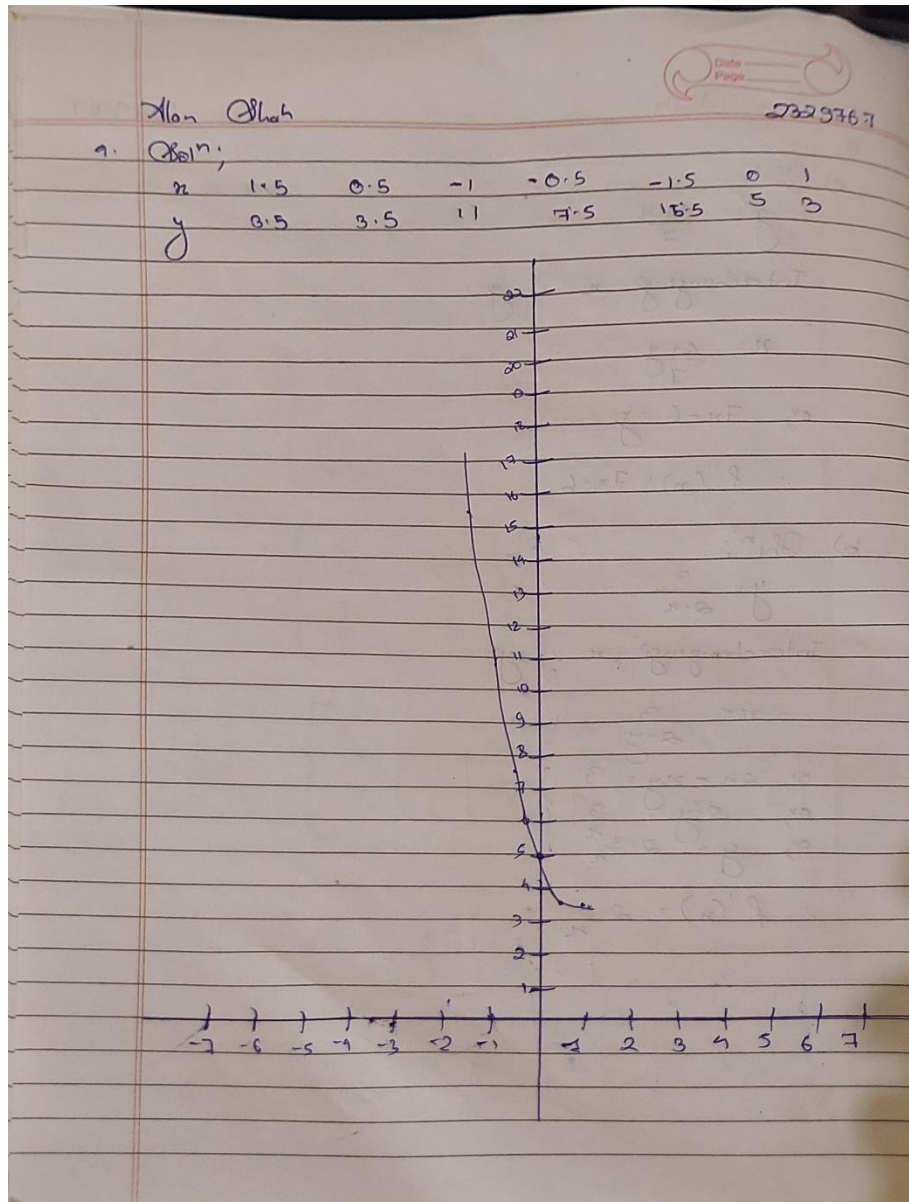 Date
Page
Alon Shah
2329767
9. Solⁿ;
x 1.5 0.5 -1 -0.5 -1.5 0 1
y 3.5 3.5 11 7.5 15.5 5 3
22
21
20
19
18
17
16
15
14
13
12
11
10
9
8
7
6
5
4
3
2
1
-7 -6 -5 -4 -3 -2 -1 1 2 3 4 5 6 7